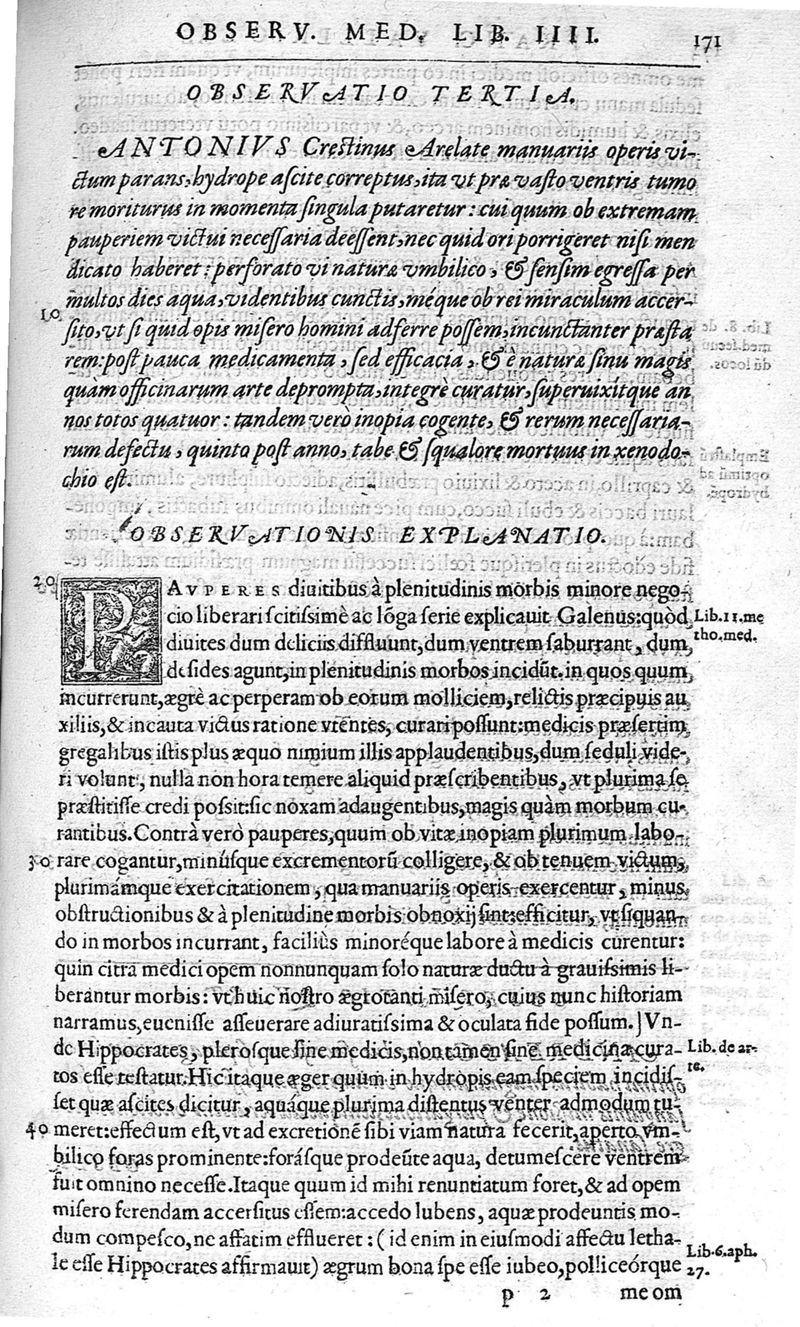 OBSERV. MED. LIB. IIII. 171
OBSERVATIO TERTIA.
ANTONIVS Crestinus Arelate manuariis operis vi-
ctum parans, hydrope ascite correptus, ita vt præ vasto ventris tumo
re moriturus in momenta singula putaretur: cui quum ob extremam
pauperiem victui necessaria deessent, nec quid ori porrigeret nisi men
dicato haberet: perforato vi naturæ vmbilico, & sensim egressa per
multos dies aqua, videntibus cunctis, méque ob rei miraculum accer-
10 sito, vt si quid opis misero homini adferre possem, incunctanter præsta
rem: post pauca medicamenta, sed efficacia, & è naturæ sinu magis
quàm officinarum arte deprompta, integrè curatur, superuixitque an
nos totos quatuor: tandem verò inopia cogente, & rerum necessaria-
rum defectu, quinto pòst anno, tabe & squalore mortuus in xenodo-
chio est.
OBSERVATIONIS EXPLANATIO.
20 PAVPERES diuitibus à plenitudinis morbis minore nego-
cio liberari scitissimè ac lõga serie explicauit Galenus: quòd
Lib. 11. me
tho. med.
diuites dum deliciis diffluunt, dum ventrem saburrant, dum
desides agunt, in plenitudinis morbos incidũt. in quos quum
incurrerunt, ægrè ac perperam ob eorum molliciem, relictis præcipuis au
xiliis, & incauta victus ratione vtentes, curari possunt: medicis præsertim
gregalibus istis plus æquo nimium illis applaudentibus, dum seduli vide-
ri volunt, nulla non hora temere aliquid præscribentibus, vt plurima se
præstitisse credi possit: sic noxam adaugentibus, magis quàm morbum cu-
rantibus. Contrà verò pauperes, quum ob vitæ inopiam plurimum labo-
30 rare cogantur, minúsque excrementorũ colligere, & ob tenuem victum,
plurimámque exercitationem, qua manuariis operis exercentur, minus
obstructionibus & à plenitudine morbis obnoxij sint: efficitur, vt siquan-
do in morbos incurrant, faciliùs minoréque labore à medicis curentur:
quin citra medici opem nonnunquam solo naturæ ductu à grauissimis li-
berantur morbis: vt huic nostro ægrotanti misero, cuius nunc historiam
narramus, euenisse asseuerare adiuratissima & oculata fide possum.] Vn-
de Hippocrates, plerosque sine medicis, non tamen sine medicina cura-
Lib. de ar-
te.
tos esse testatur. Hic itaque æger quum in hydropis eam speciem incidis-
set quæ ascites dicitur, aquáque plurima distentus venter admodum tu-
40 meret: effectum est, vt ad excretionẽ sibi viam natura fecerit, aperto vm-
bilico foras prominente: forásque prodeũte aqua, detumescere ventrem
fuit omnino necesse. Itaque quum id mihi renuntiatum foret, & ad opem
misero ferendam accersitus essem: accedo lubens, aquæ prodeuntis mo-
dum compesco, ne affatim efflueret: (id enim in eiusmodi affectu letha-
le esse Hippocrates affirmauit) ægrum bona spe esse iubeo, polliceórque
Lib. 6. aph.
27.
p 2 me om